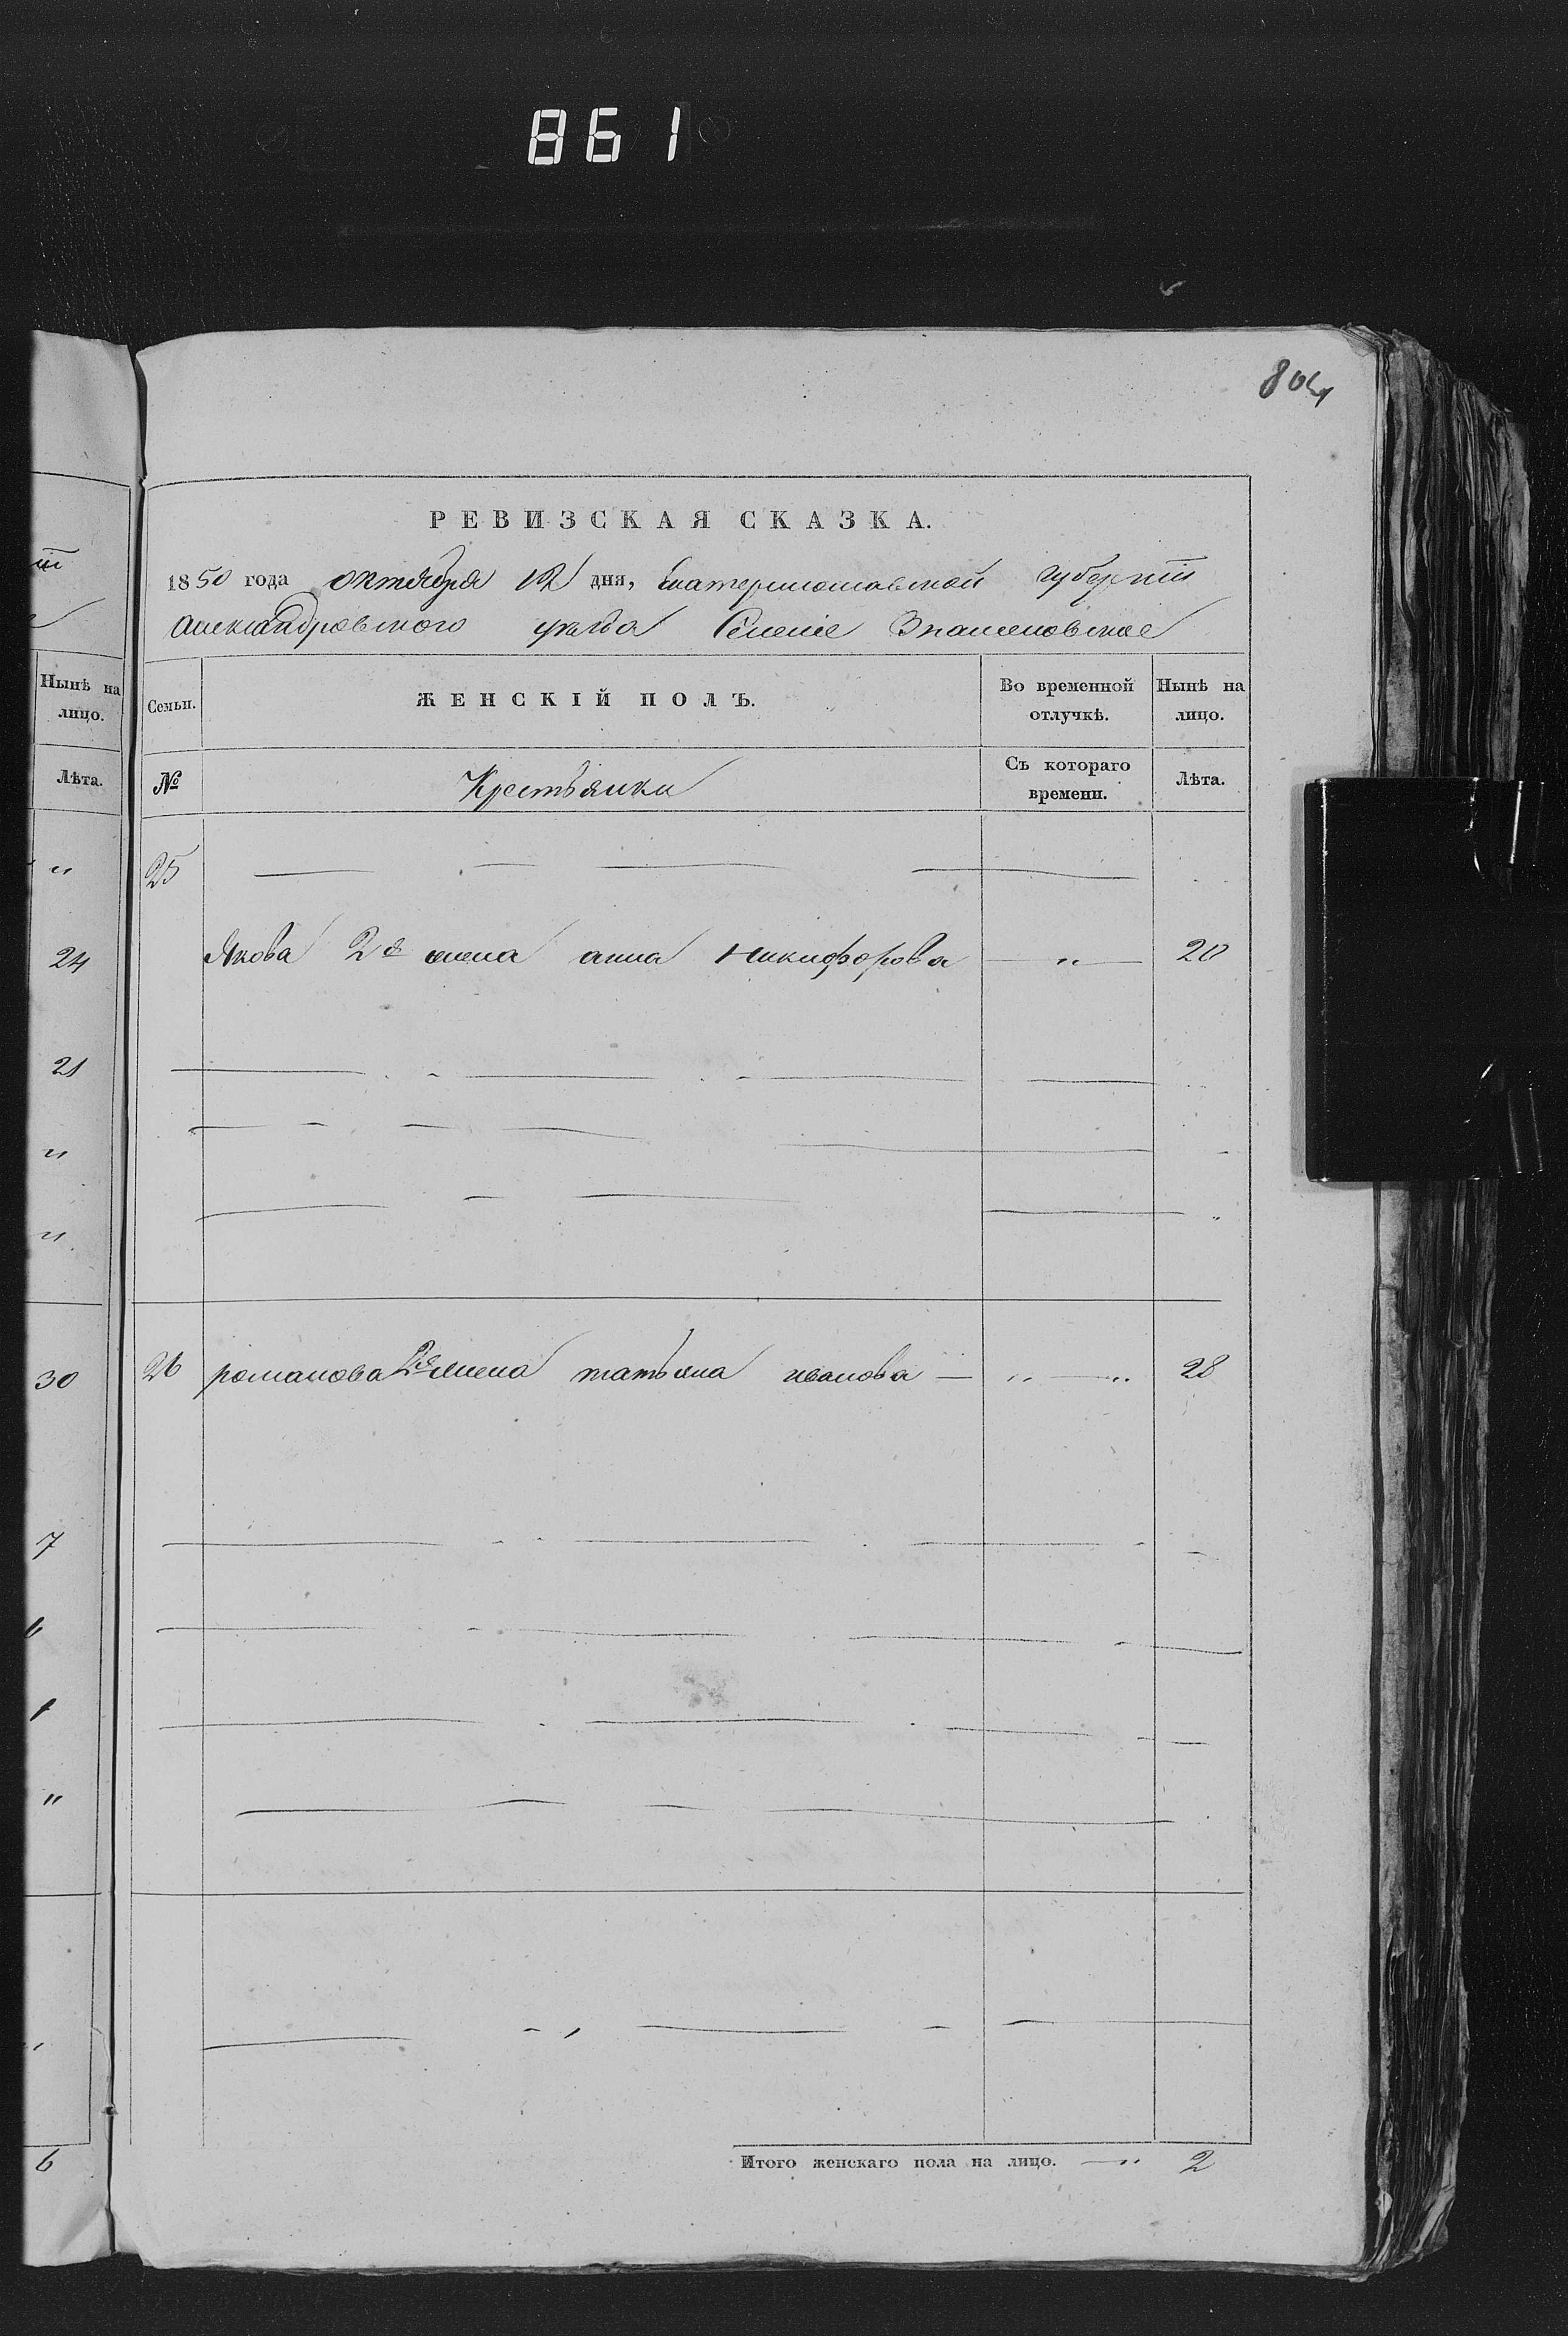 861
804
РЕВИЗСКАЯ СКАЗКА.
1850 года октября 12 дня, Екатеринославской губерніи
Александровского уѣзда Селеніе Знаменовское
Нынѣ на лицо.
Лѣта.
"
24
21
"
"
30
7
"
6
Семьи. ЖЕНСКІЙ ПОЛЪ. Во временной отлучкѣ. Нынѣ на лицо.
№ Крестьянки Съ котораго времени. Лѣта.
25
Якова 2я жена анна никифорова — " — 20
26 романова 2я жена татьяна иванова — " — " 28
Итого женскаго пола на лицо. — " 2